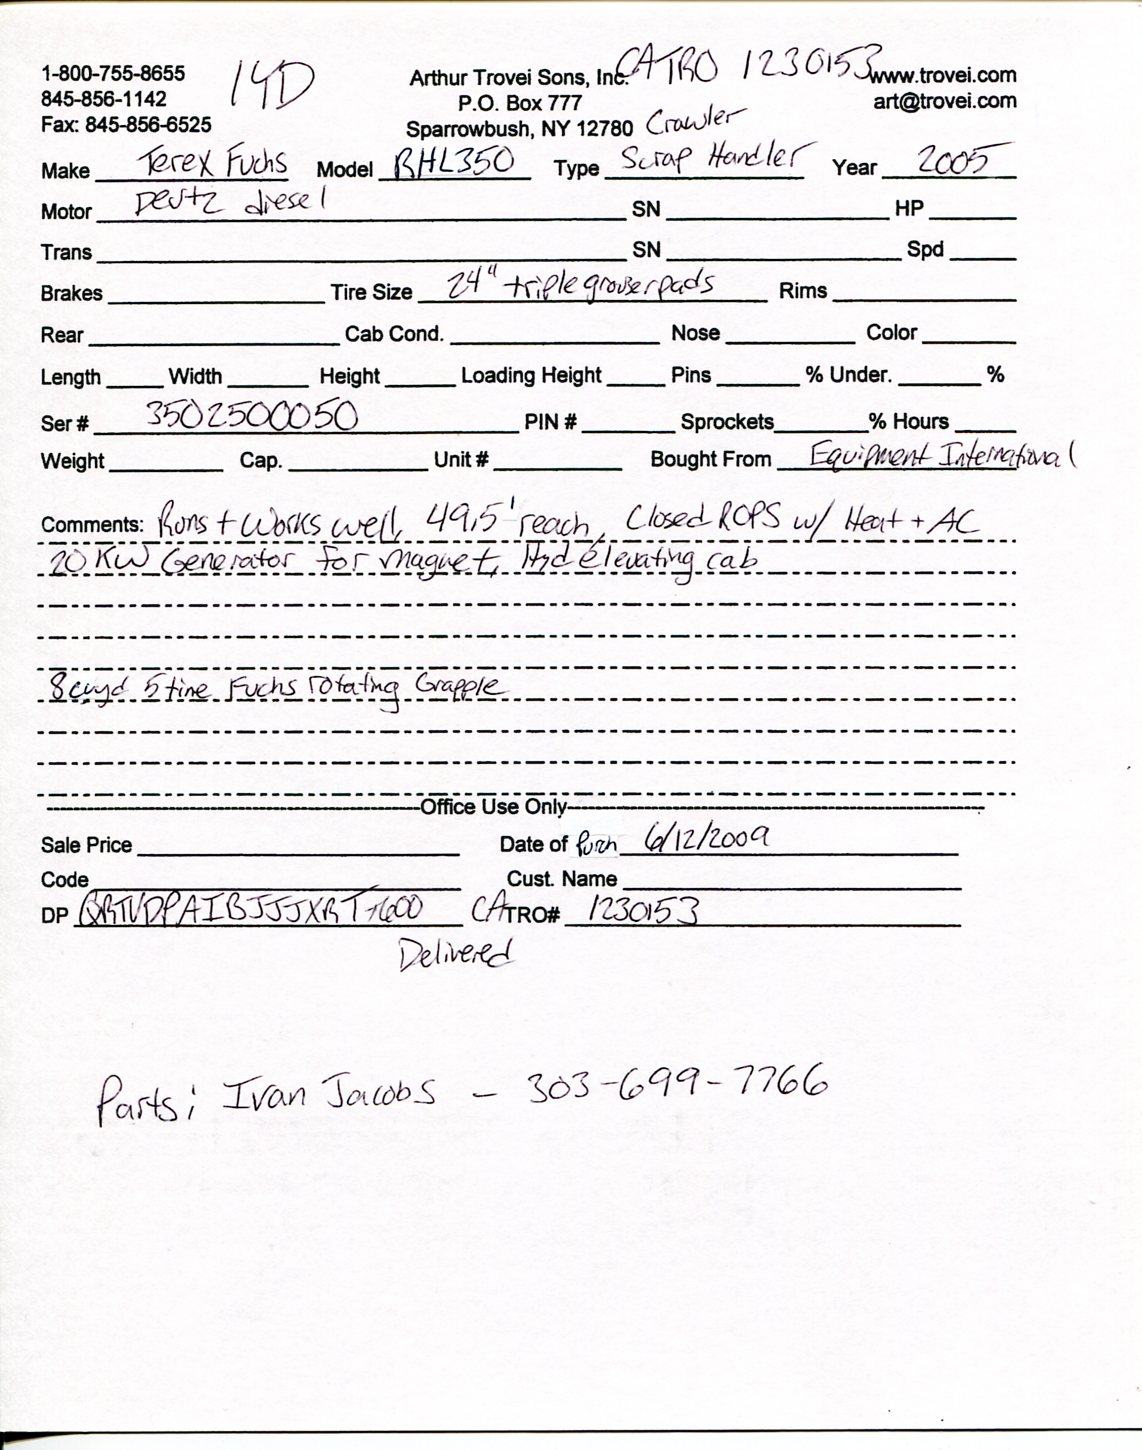 1-800-755-8655 14D Arthur Trovei Sons, Inc. CATRO 1230153 www.trovei.com
845-856-1142 P.O. Box 777 art@trovei.com
Fax: 845-856-6525 Sparrowbush, NY 12780 Crawler
Make Terex Fuchs Model RHL350 Type Scrap Handler Year 2005
Motor Deutz diesel SN HP
Trans SN Spd
Brakes Tire Size 24" triple grouser pads Rims
Rear Cab Cond. Nose Color
Length Width Height Loading Height Pins % Under. %
Ser # 3502500050 PIN # Sprockets % Hours
Weight Cap. Unit # Bought From Equipment International
Comments: Runs + Works well, 49,5' reach, Closed ROPS w/ Heat + AC
20 KW Generator for magnet, Hyd elevating cab
8 cuyd 5 tine Fuchs rotating Grapple
Office Use Only
Sale Price Date of Purch 6/12/2009
Code Cust. Name
DP CATRO# 1230153
Delivered
Parts; Ivan Jacobs - 303-699-7766